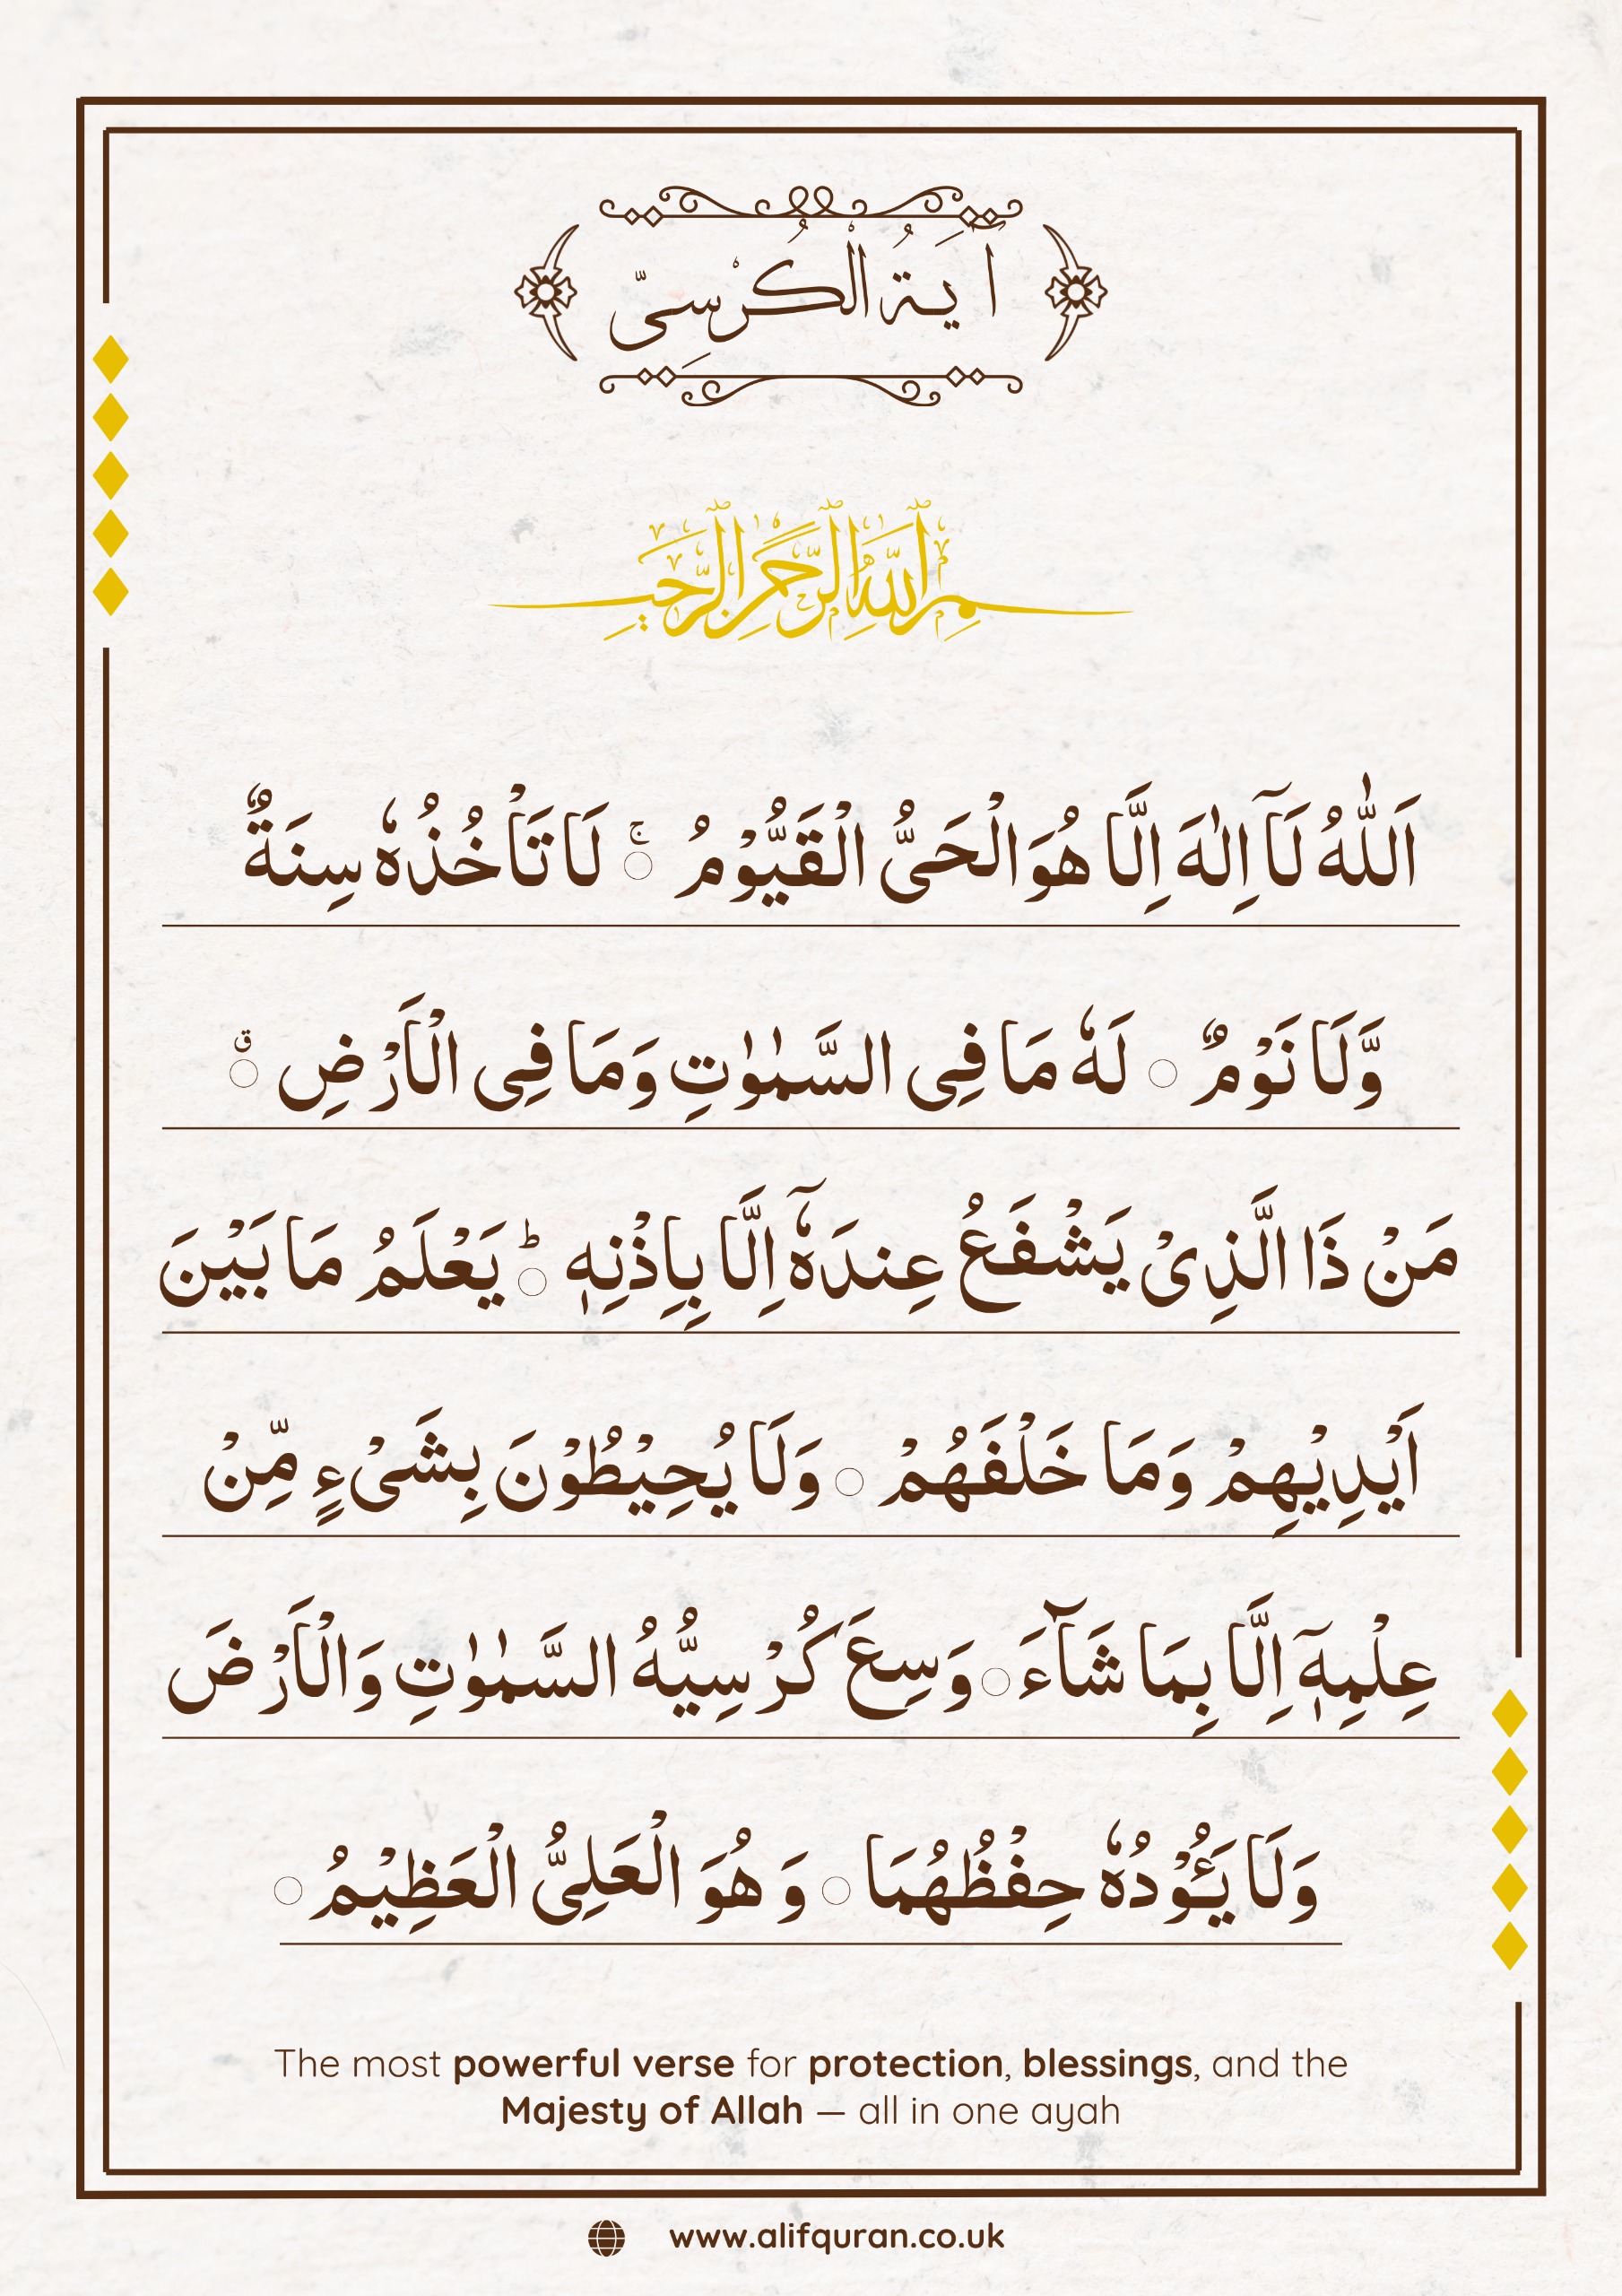 اٰيَةُ الْكُرْسِىّ
بِسْمِ اللّٰهِ الرَّحْمٰنِ الرَّحِيْمِ
اَللّٰهُ لَآ اِلٰهَ اِلَّا هُوَ الْحَىُّ الْقَيُّوْمُ ۚ لَا تَاْخُذُهٗ سِنَةٌ
وَّلَا نَوْمٌ ۝ لَهٗ مَا فِى السَّمٰوٰتِ وَمَا فِى الْاَرْضِ ۝ۗ
مَنْ ذَا الَّذِىْ يَشْفَعُ عِندَهٗٓ اِلَّا بِاِذْنِهٖ ۝ؕ يَعْلَمُ مَا بَيْنَ
اَيْدِيْهِمْ وَمَا خَلْفَهُمْ ۝ وَلَا يُحِيْطُوْنَ بِشَىْءٍ مِّنْ
عِلْمِهٖٓ اِلَّا بِمَا شَآءَ ۝ وَسِعَ كُرْسِيُّهُ السَّمٰوٰتِ وَالْاَرْضَ
وَلَا يَـُٔوْدُهٗ حِفْظُهُمَا ۝ وَ هُوَ الْعَلِىُّ الْعَظِيْمُ ۝
The most powerful verse for protection, blessings, and the
Majesty of Allah — all in one ayah
www.alifquran.co.uk